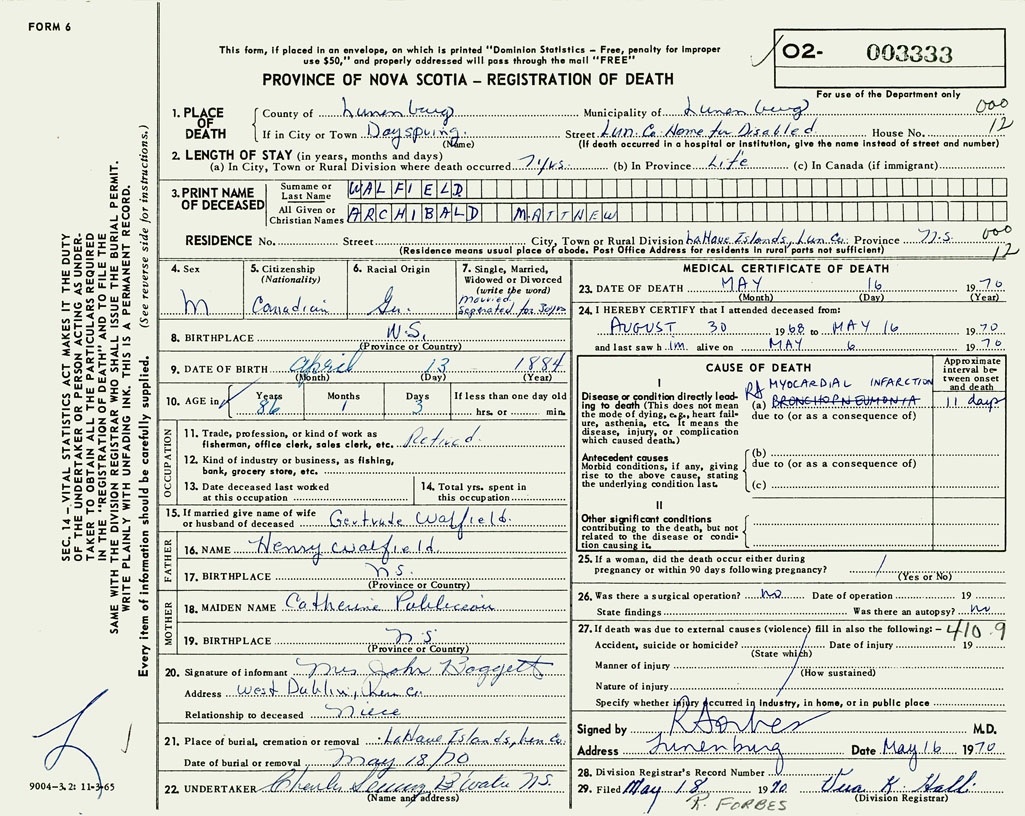 FORM 6
This form, if placed in an envelope, on which is printed "Dominion Statistics – Free, penalty for improper
use $50," and properly addressed will pass through the mail "FREE"
PROVINCE OF NOVA SCOTIA – REGISTRATION OF DEATH
O2- 003333
For use of the Department only
000
12
1. PLACE OF DEATH
County of Lunenburg Municipality of Lunenburg
If in City or Town Dayspring Street Lun. Co. Home for Disabled House No.
(Name) (If death occurred in a hospital or Institution, give the name instead of street and number)
2. LENGTH OF STAY (in years, months and days)
(a) In City, Town or Rural Division where death occurred 7 yrs. (b) In Province Life (c) In Canada (if immigrant)
3. PRINT NAME OF DECEASED
Surname or Last Name WALFIELD
All Given or Christian Names ARCHIBALD MATTNEW
RESIDENCE No. Street City, Town or Rural Division LaHave Islands, Lun. Co. Province N.S. 000
(Residence means usual place of abode. Post Office Address for residents in rural parts not sufficient) 12
4. Sex M
5. Citizenship (Nationality) Canadian
6. Racial Origin Ger.
7. Single, Married, Widowed or Divorced (write the word) married, Seperated for 30 yrs
8. BIRTHPLACE N.S.
(Province or Country)
9. DATE OF BIRTH April 13 1884
(Month) (Day) (Year)
10. AGE in Years 86 Months 1 Days 3 If less than one day old hrs. or min.
OCCUPATION
11. Trade, profession, or kind of work as
fisherman, office clerk, sales clerk, etc. Retired.
12. Kind of industry or business, as fishing,
bank, grocery store, etc.
13. Date deceased last worked
at this occupation
14. Total yrs. spent in
this occupation
15. If married give name of wife
or husband of deceased Gertrude Walfield.
FATHER
16. NAME Henry Walfield.
17. BIRTHPLACE N.S.
(Province or Country)
MOTHER
18. MAIDEN NAME Catherine
19. BIRTHPLACE N.S.
(Province or Country)
20. Signature of informant Mrs John Boggett
Address West Dublin, Lun Co.
Relationship to deceased Niece
21. Place of burial, cremation or removal LaHave Islands, Lun Co.
Date of burial or removal May 18/70
22. UNDERTAKER Charles B'water N.S.
(Name and address)
MEDICAL CERTIFICATE OF DEATH
23. DATE OF DEATH MAY 16 1970
(Month) (Day) (Year)
24. I HEREBY CERTIFY that I attended deceased from:
AUGUST 30 1968 to MAY 16 1970
and last saw him alive on MAY 6 1970
CAUSE OF DEATH
Approximate interval between onset and death
I
Disease or condition directly leading
to death (This does not mean
the mode of dying, e.g., heart failure,
asthenia, etc. It means the
disease, injury, or complication
which caused death.)
RF MYOCARDIAL INFARCTION
(a) BRONCHOPNEUMONIA 11 days
due to (or as a consequence of)
Antecedent causes
Morbid conditions, if any, giving
rise to the above cause, stating
the underlying condition last.
(b)
due to (or as a consequence of)
(c)
II
Other significant conditions
contributing to the death, but not
related to the disease or condition
causing it.
25. If a woman, did the death occur either during
pregnancy or within 90 days following pregnancy? /
(Yes or No)
26. Was there a surgical operation? no Date of operation 19
State findings Was there an autopsy? no
27. If death was due to external causes (violence) fill in also the following: – 410.9
Accident, suicide or homicide? Date of injury 19
(State which)
Manner of injury
(How sustained)
Nature of injury
Specify whether injury occurred in Industry, in home, or in public place
Signed by R Forbes M.D.
Address Lunenburg Date May 16 1970
28. Division Registrar's Record Number
29. Filed May 18 1970 Vera K. Hall
(Division Registrar)
R. FORBES
SEC. 14 – VITAL STATISTICS ACT MAKES IT THE DUTY
OF THE UNDERTAKER OR PERSON ACTING AS UNDER-
TAKER TO OBTAIN ALL THE PARTICULARS REQUIRED
IN THE "REGISTRATION OF DEATH" AND TO FILE THE
SAME WITH THE DIVISION REGISTRAR WHO SHALL ISSUE THE BURIAL PERMIT.
WRITE PLAINLY WITH UNFADING INK. THIS IS A PERMANENT RECORD.
Every item of information should be carefully supplied. (See reverse side for instructions.)
9004–3.2: 11-3-65